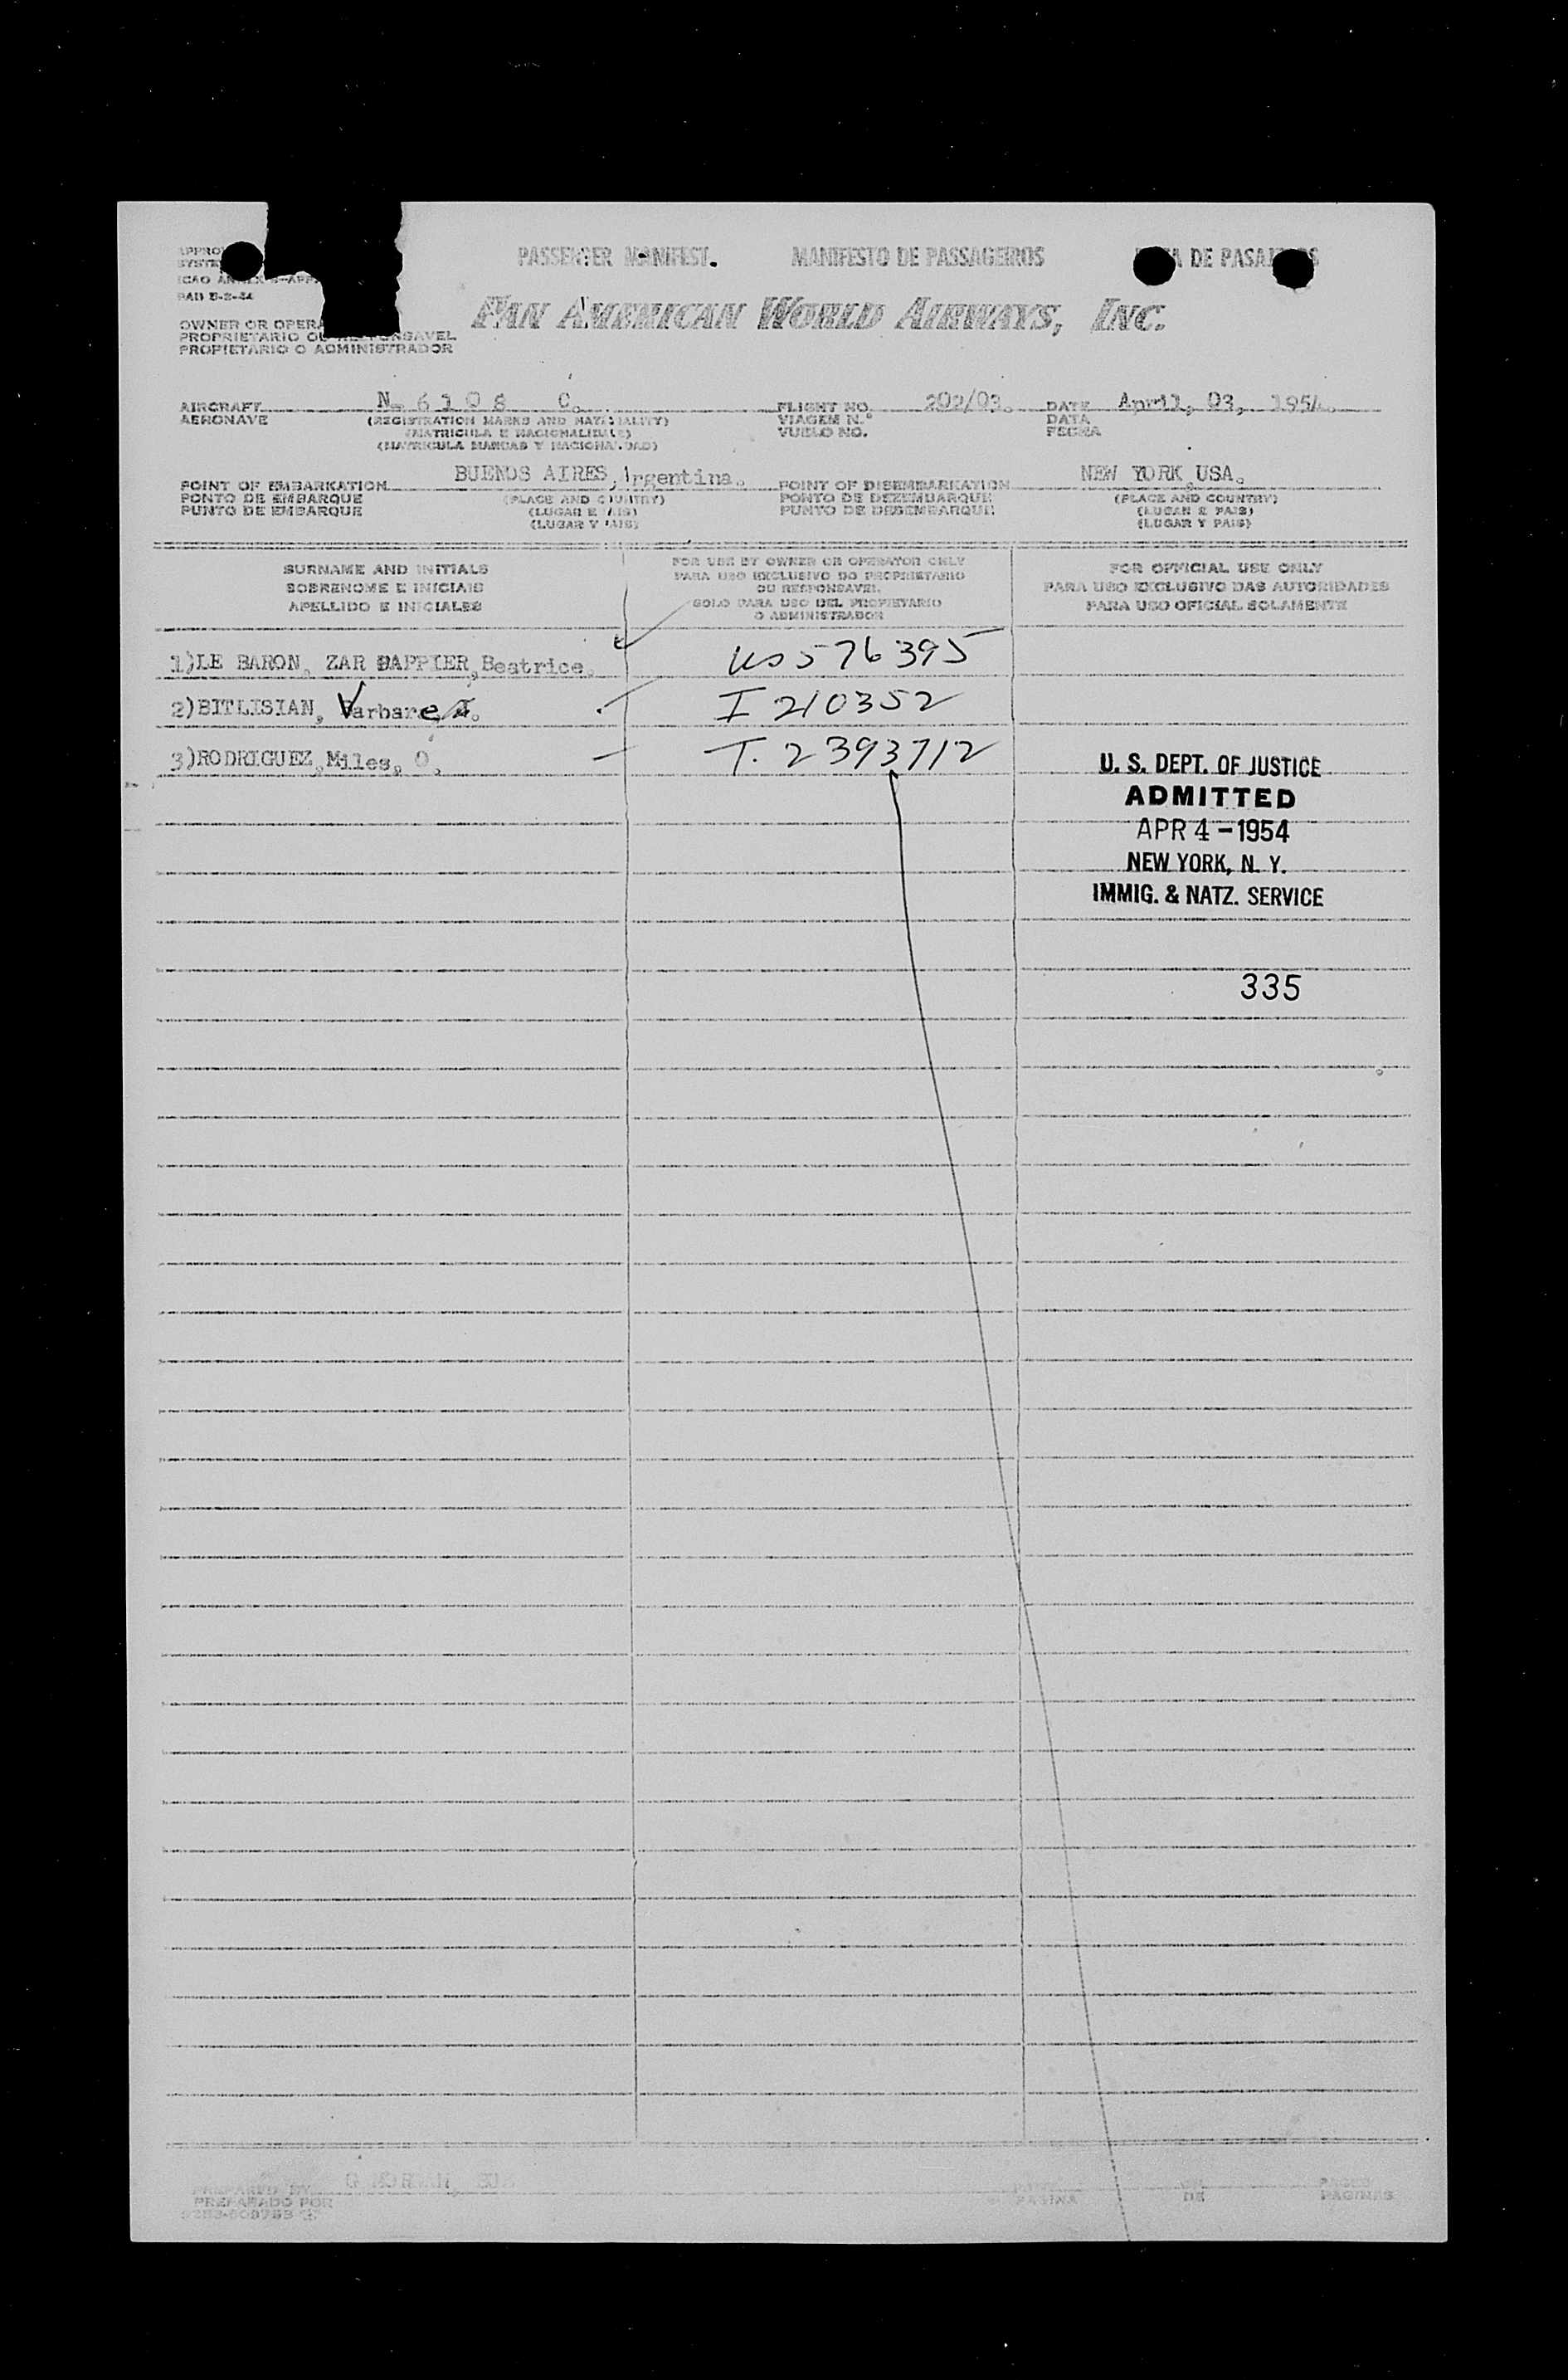 PASSENGER MANIFEST. MANIFESTO DE PASSAGEIROS DE
PAN AMERICAN WORLD AIRWAYS, INC.
OWNER OR
PROPRIETARIO OU
PROPIETARIO O ADMINISTRADOR
AIRCRAFT N- 6108 C. FLIGHT NO. 202/03. DATE April, 03, 1954.
AERONAVE (REGISTRATION MARKS AND NATIONALITY) VIAGEM N.º DATA
(MATRICULA E NACIONALIDADE) VUELO NO. FECHA
(MATRICULA MARCAS Y NACIONALIDAD)
POINT OF EMBARKATION BUENOS AIRES, Argentina. POINT OF DISEMBARKATION NEW YORK, USA.
PONTO DE EMBARQUE (PLACE AND COUNTRY) PONTO DE DEZEMBARQUE (PLACE AND COUNTRY)
PUNTO DE EMBARQUE (LUGAR E PAIS) PUNTO DE DESEMBARQUE (LUGAR E PAIS)
(LUGAR Y PAIS) (LUGAR Y PAIS)
SURNAME AND INITIALS
SOBRENOME E INICIAIS
APELLIDO E INICIALES
FOR USE BY OWNER OR OPERATOR ONLY
PARA USO EXCLUSIVO DO PROPRIETARIO
OU RESPONSAVEL
SOLO PARA USO DEL PROPIETARIO
O ADMINISTRADOR
FOR OFFICIAL USE ONLY
PARA USO EXCLUSIVO DAS AUTORIDADES
PARA USO OFICIAL SOLAMENTE
1)LE BARON, ZAR DAPPIER, Beatrice. US 576395
2)BITLISIAN, Varbare, I 210352
3)RODRIGUEZ, Miles, O. T. 2393712
U. S. DEPT. OF JUSTICE
ADMITTED
APR 4 - 1954
NEW YORK, N. Y.
IMMIG. & NATZ. SERVICE
335
PREPARED BY
PREPARADO POR
PAGINA DE PAGINAS